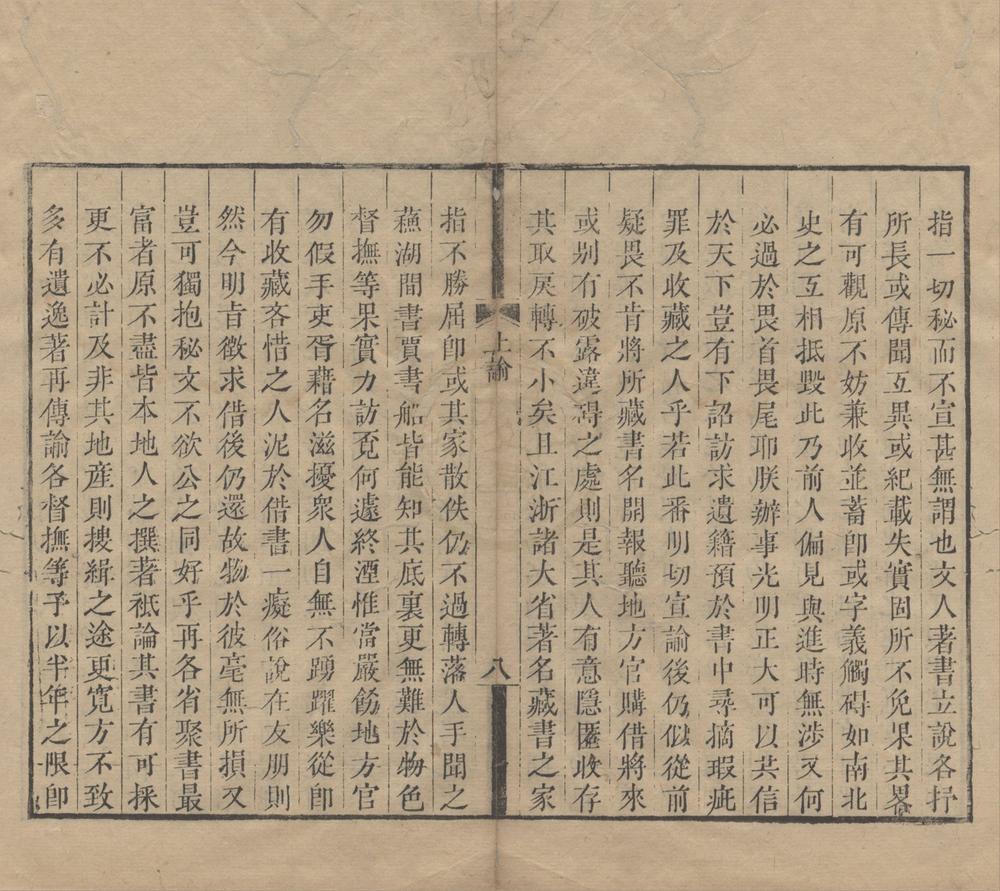 指一切秘而不宣甚無謂也文人著書立說各抒
所長或傳聞互異或紀載失實固所不免果其畧
有可觀原不妨兼收並蓄卽或字義觸碍如南北
史之互相抵毀此乃前人偏見與進時無涉又何
必過於畏首畏尾耶朕辦事光明正大可以共信
於天下豈有下詔訪求遺籍預於書中尋摘瑕疵
罪及收藏之人乎若此番明切宣諭後仍似從前
疑畏不肯將所藏書名開報聽地方官購借將來
或别有破露違碍之處則是其人有意隱匿收存
其取戾轉不小矣且江浙諸大省著名藏書之家
上諭
八
指不勝屈卽或其家散佚仍不過轉落人手聞之
蕪湖間書賈書船皆能知其底裏更無難於物色
督撫等果實力訪覔何遽終湮惟當嚴飭地方官
勿假手吏胥藉名滋擾衆人自無不踴躍樂從卽
有收藏吝惜之人泥於借書一癡俗說在友朋則
然今明旨徵求借後仍還故物於彼毫無所損又
豈可獨抱秘文不欲公之同好乎再各省聚書最
富者原不盡皆本地人之撰著祗論其書有可採
更不必計及非其地産則搜緝之途更寛方不致
多有遺逸著再傳諭各督撫等予以半年之限卽